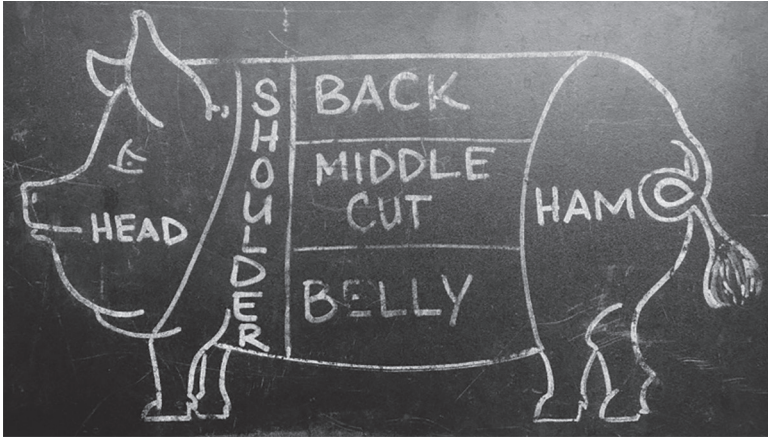 HEAD
SHOULDER
BACK
MIDDLE
CUT
BELLY
HAM